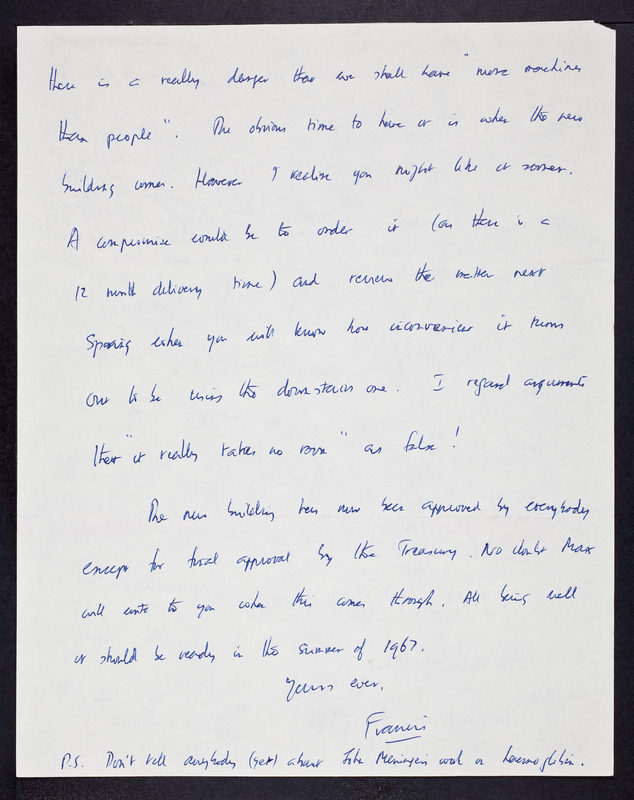 there is a really danger that we shall have "more machines
than people". The obvious time to have it is when the new
building comes. However I realise you might like it sooner.
A compromise would be to order it (as there is a
12 month delivery time) and review the matter next
Spring when you will know how inconvenient it turns
out to be using the downstairs one. I regard arguments
that "it really takes no room" as false!
The new building has now been approved by everybody
except for final approval by the Treasury. No doubt Max
will write to you when this comes through. All being well
it should be ready in the summer of 1967.
Yours ever,
Francis
P.S. Don't tell anybody (yet) about John Menninger's work on haemoglobin.